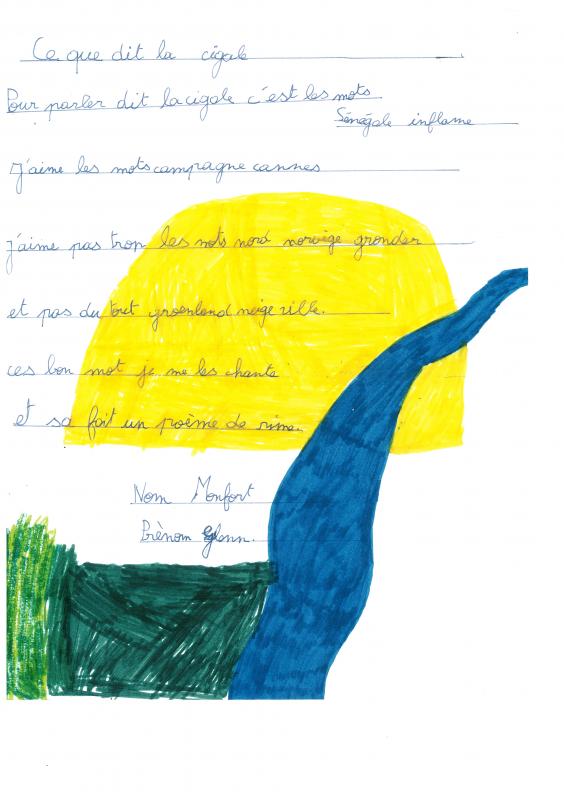 Ce que dit la cigale
Pour parler dit la cigale c'est les mots
Sénégale inflame
J'aime les mots campagne cannes
j'aime pas trop les mots nord norvège gronder
et pas du tout groenland neige ville.
ces bon mot je me les chante
et sa fait un poème de rime.
Nom Monfort
Prènom Glenn.